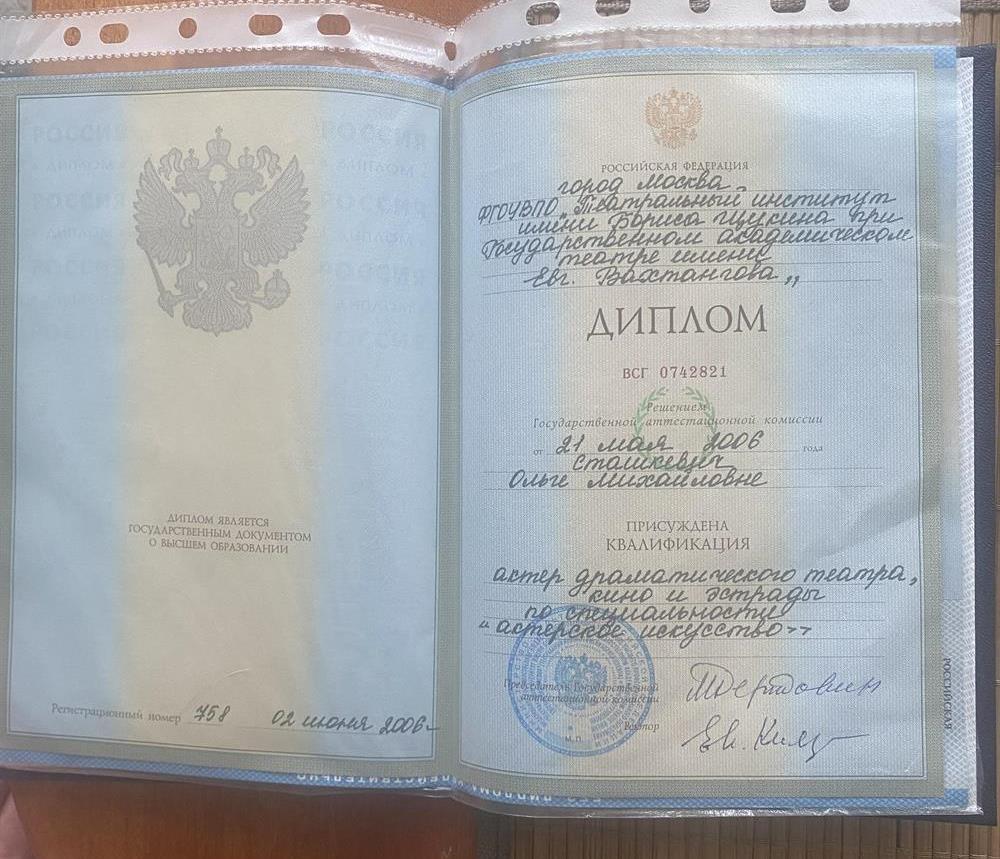 РОССИЯ РОССИЯ
РОССИЯ РОССИЯ
РОССИЯ РОССИЯ
ДИПЛОМ ЯВЛЯЕТСЯ
ГОСУДАРСТВЕННЫМ ДОКУМЕНТОМ
О ВЫСШЕМ ОБРАЗОВАНИИ
Регистрационный номер 758 02 июня 2006г
РОССИЙСКАЯ ФЕДЕРАЦИЯ
город Москва
ФГОУВПО "Театральный институт
имени Бориса Щукина при
Государственном академическом
театре имени
Евг. Вахтангова"
ДИПЛОМ
ВСГ 0742821
Решением
Государственной аттестационной комиссии
от 21 мая 2006 года
Сташкевич
Ольге Михайловне
ПРИСУЖДЕНА
КВАЛИФИКАЦИЯ
актер драматического театра,
кино и эстрады
по специальности
"актерское искусство"
Председатель Государственной
аттестационной комиссии
М.П. Ректор
РОССИЙСКАЯ